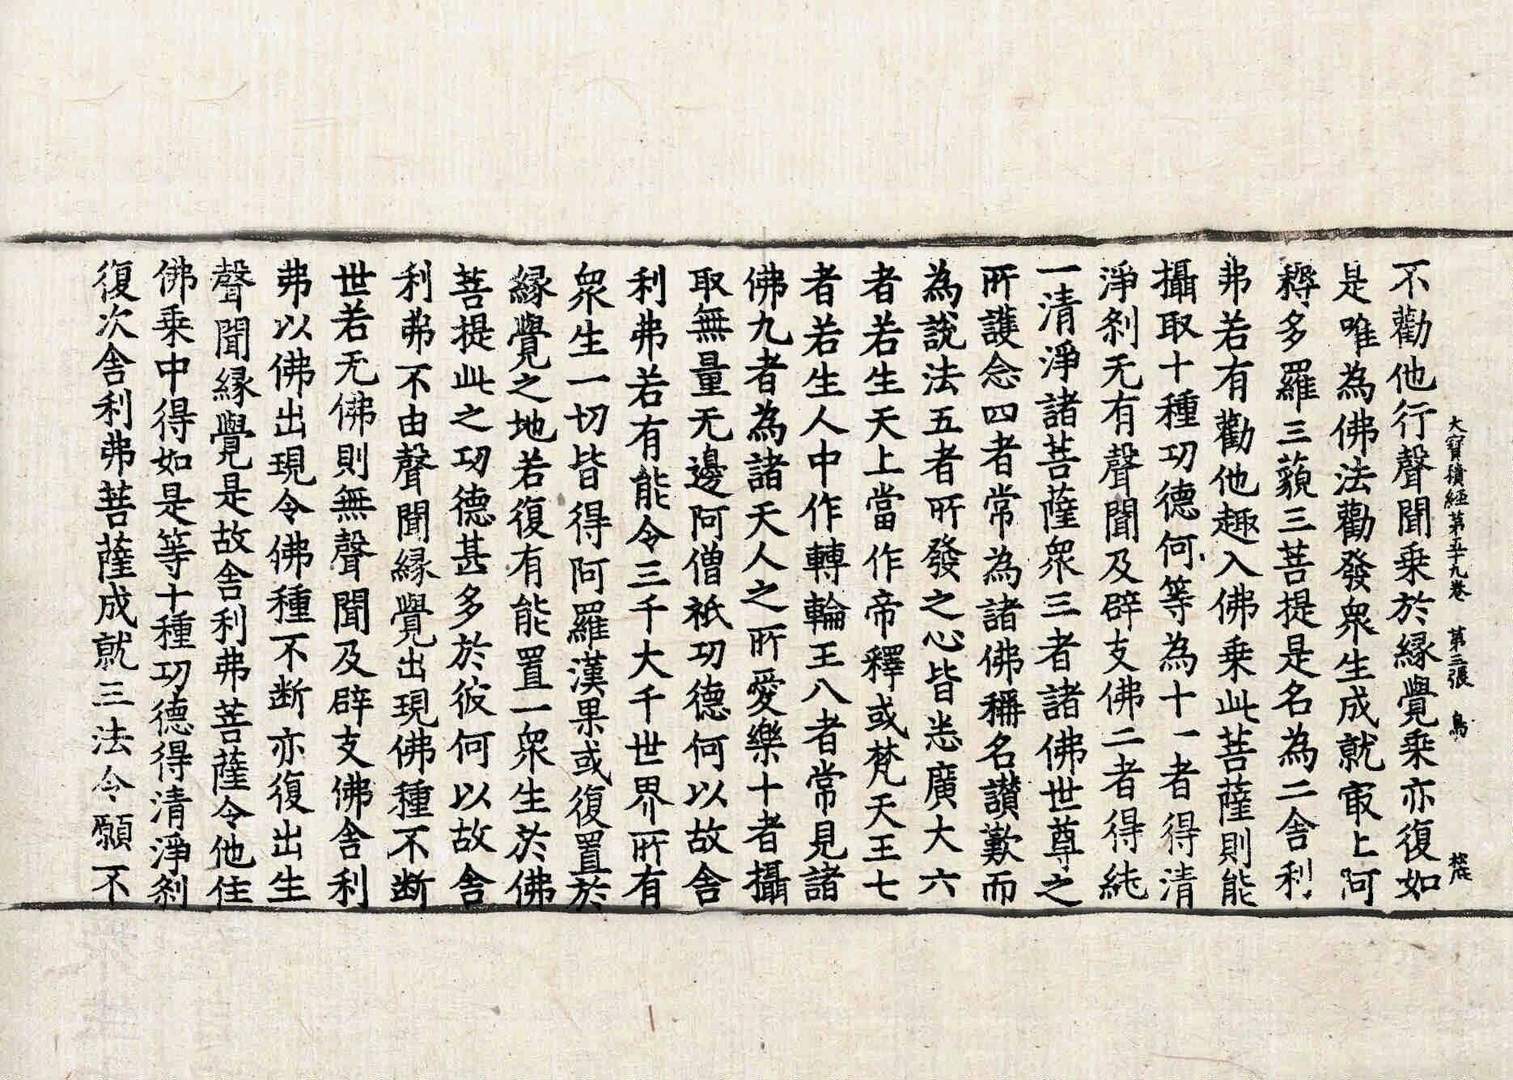 大寶積經第五十九卷　第三張　鳥
不勸他行聲聞乘於縁覺乘亦復如
是唯為佛法勸發衆生成就㝡上阿
耨多羅三藐三菩提是名為二舎利
弗若有勸他趣入佛乘此菩薩則能
攝取十種功德何等為十一者得清
淨刹无有聲聞及辟支佛二者得純
一清淨諸菩薩衆三者諸佛世尊之
所護念四者常為諸佛稱名讃歎而
為說法五者所發之心皆悉廣大六
者若生天上當作帝釋或梵天王七
者若生人中作轉輪王八者常見諸
佛九者為諸天人之所愛樂十者攝
取無量无邊阿僧祇功德何以故舎
利弗若有能令三千大千世界所有
衆生一切皆得阿羅漢果或復置於
縁覺之地若復有能置一衆生於佛
菩提此之功德甚多於彼何以故舎
利弗不由聲聞縁覺出現佛種不断
世若无佛則無聲聞及辟支佛舎利
弗以佛出現令佛種不断亦復出生
聲聞縁覺是故舎利弗菩薩令他住
佛乘中得如是等十種功德得清淨刹
復次舎利弗菩薩成就三法令願不